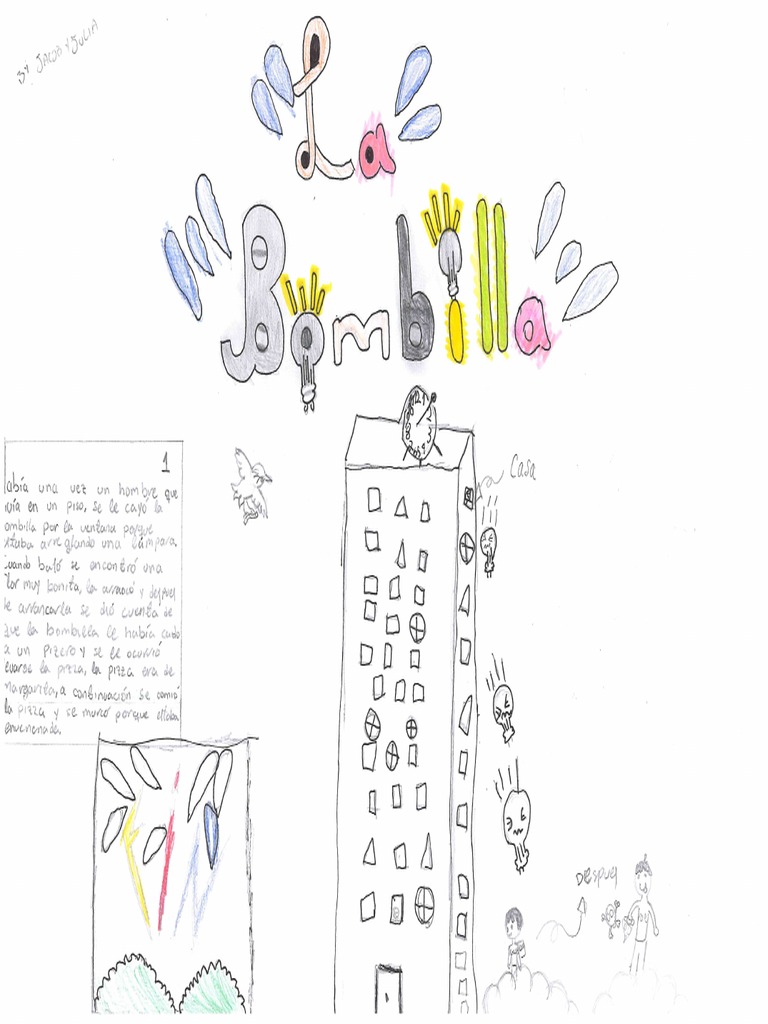 BY JACOB Y JULIA
La
Bombilla
1
abía una vez un hombre que
vía en un piso, se le cayó la
ombilla por la ventana porque
staba arreglando una lámpara.
uando bajó se encontró una
lor muy bonita, la arrancó y después
de arrancarla se dió cuenta de
que la bombilla le había caido
a un pizero y se le ocurrió
llevarse la pizza, la pizza era de
margarita, a continuación se comió
la pizza y se murió porque estaba
envenenada.
Casa
DESPUES